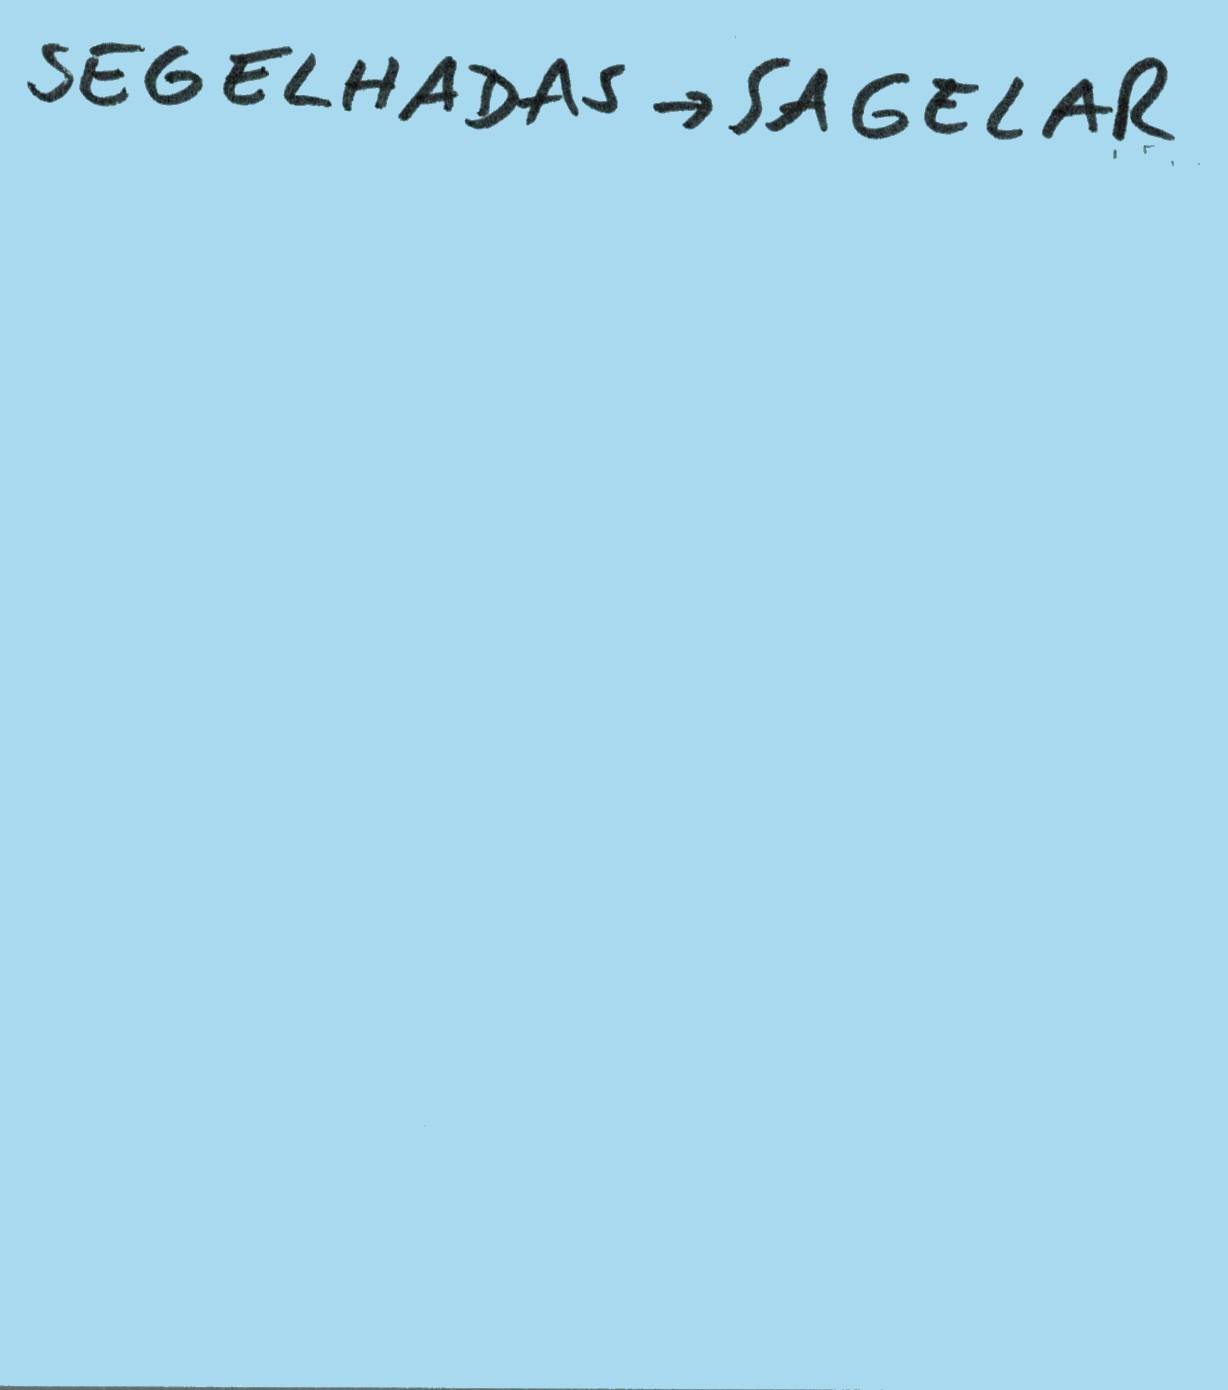 SEGELHADAS → SAGELAR